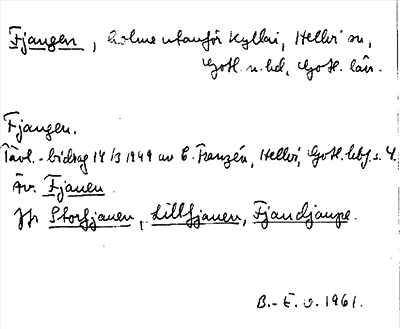 Fjangen, holme utanför Kyllai, Hellvi sn,
Gotl. n. hd, Gotl. län.
Fjangen.
Tävl.-bidrag 14/3 1949 av E. Franzén, Hellvi, Gotl. s. 4.
Äv. Fjauen.
Jfr Storfjauen, Lillfjauen, Fjaudjaupe.
B.-E. O. 1961.